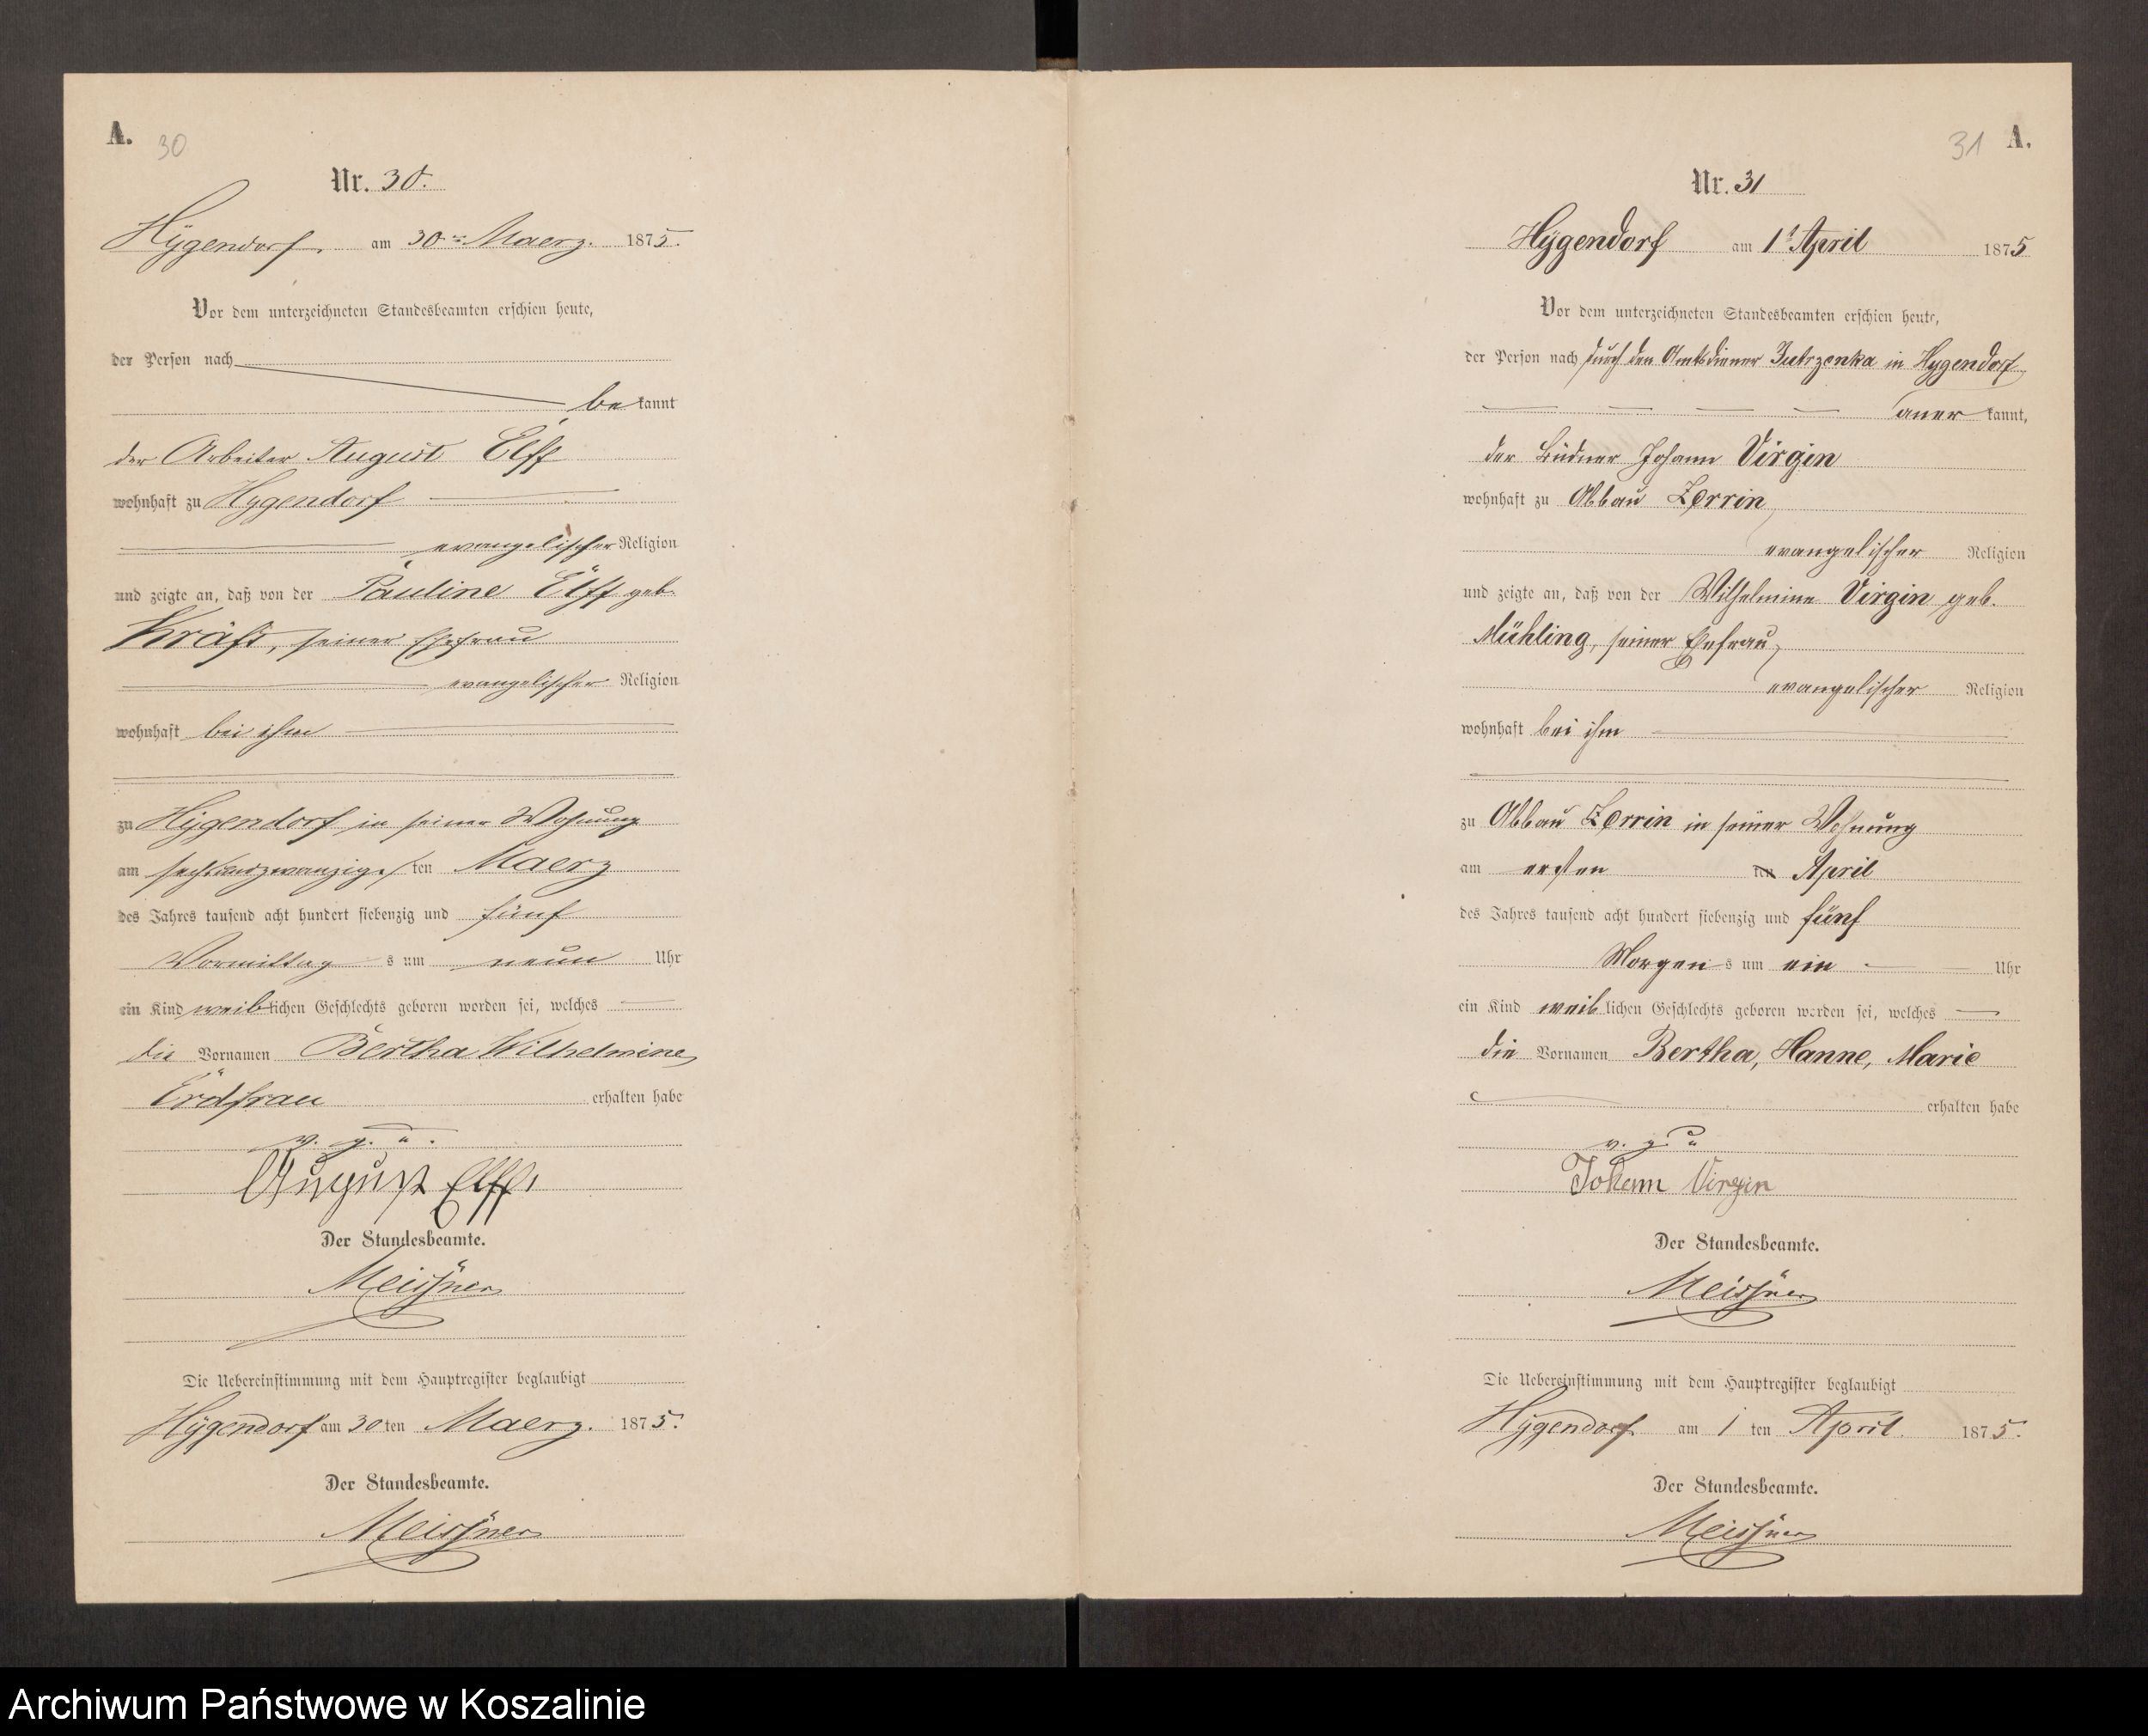 A. 30
Nr. 30.
Hÿgendorf. am 30ten Maerz. 1875.
Vor dem unterzeichneten Standesbeamten erschien heute,
der Person nach
bekannt
der Arbeiter August Elff
wohnhaft zu Hygendorf
evangelischer Religion
und zeigte an, daß von der Pauline Elff geb.
Kräft, seiner Ehefrau
evangelischer Religion
wohnhaft bei ihm
zu Hÿgendorf in seiner Wohnung
am sechsundzwanzigsten Maerz
des Jahres tausend acht hundert siebenzig und fünf
Vormittags um neun Uhr
ein Kind weiblichen Geschlechts geboren worden sei, welches
die Vornamen Bertha Wilhelmine,
Erdfrau erhalten habe
v. g. u.
August Elff.
Der Standesbeamte.
Meissner
Die Uebereinstimmung mit dem Hauptregister beglaubigt
Hÿgendorf am 30ten Maerz. 1875.
Der Standesbeamte.
Meissner
31 A.
Nr. 31
Hÿgendorf am 1t April 1875
Vor dem unterzeichneten Standesbeamten erschien heute,
der Person nach durch den Amtsdiener Jutrzenka in Hygendorf
anerkannt,
der Büdner Johann Virgin
wohnhaft zu Abbau Zerrin,
evangelischer Religion
und zeigte an, daß von der Wilhelmine Virgin geb.
Mühling, seiner Ehefrau,
evangelischer Religion
wohnhaft bei ihm
zu Abbau Zerrin in seiner Wohnung
am ersten ten April
des Jahres tausend acht hundert siebenzig und fünf
Morgens um ein Uhr
ein Kind weiblichen Geschlechts geboren worden sei, welches
die Vornamen Bertha, Hanne, Marie
erhalten habe
v. g. u
Johann Virgin
Der Standesbeamte.
Meissner
Die Uebereinstimmung mit dem Hauptregister beglaubigt
Hÿgendorf am 1 ten April. 1875.
Der Standesbeamte.
Meissner
Archiwum Państwowe w Koszalinie